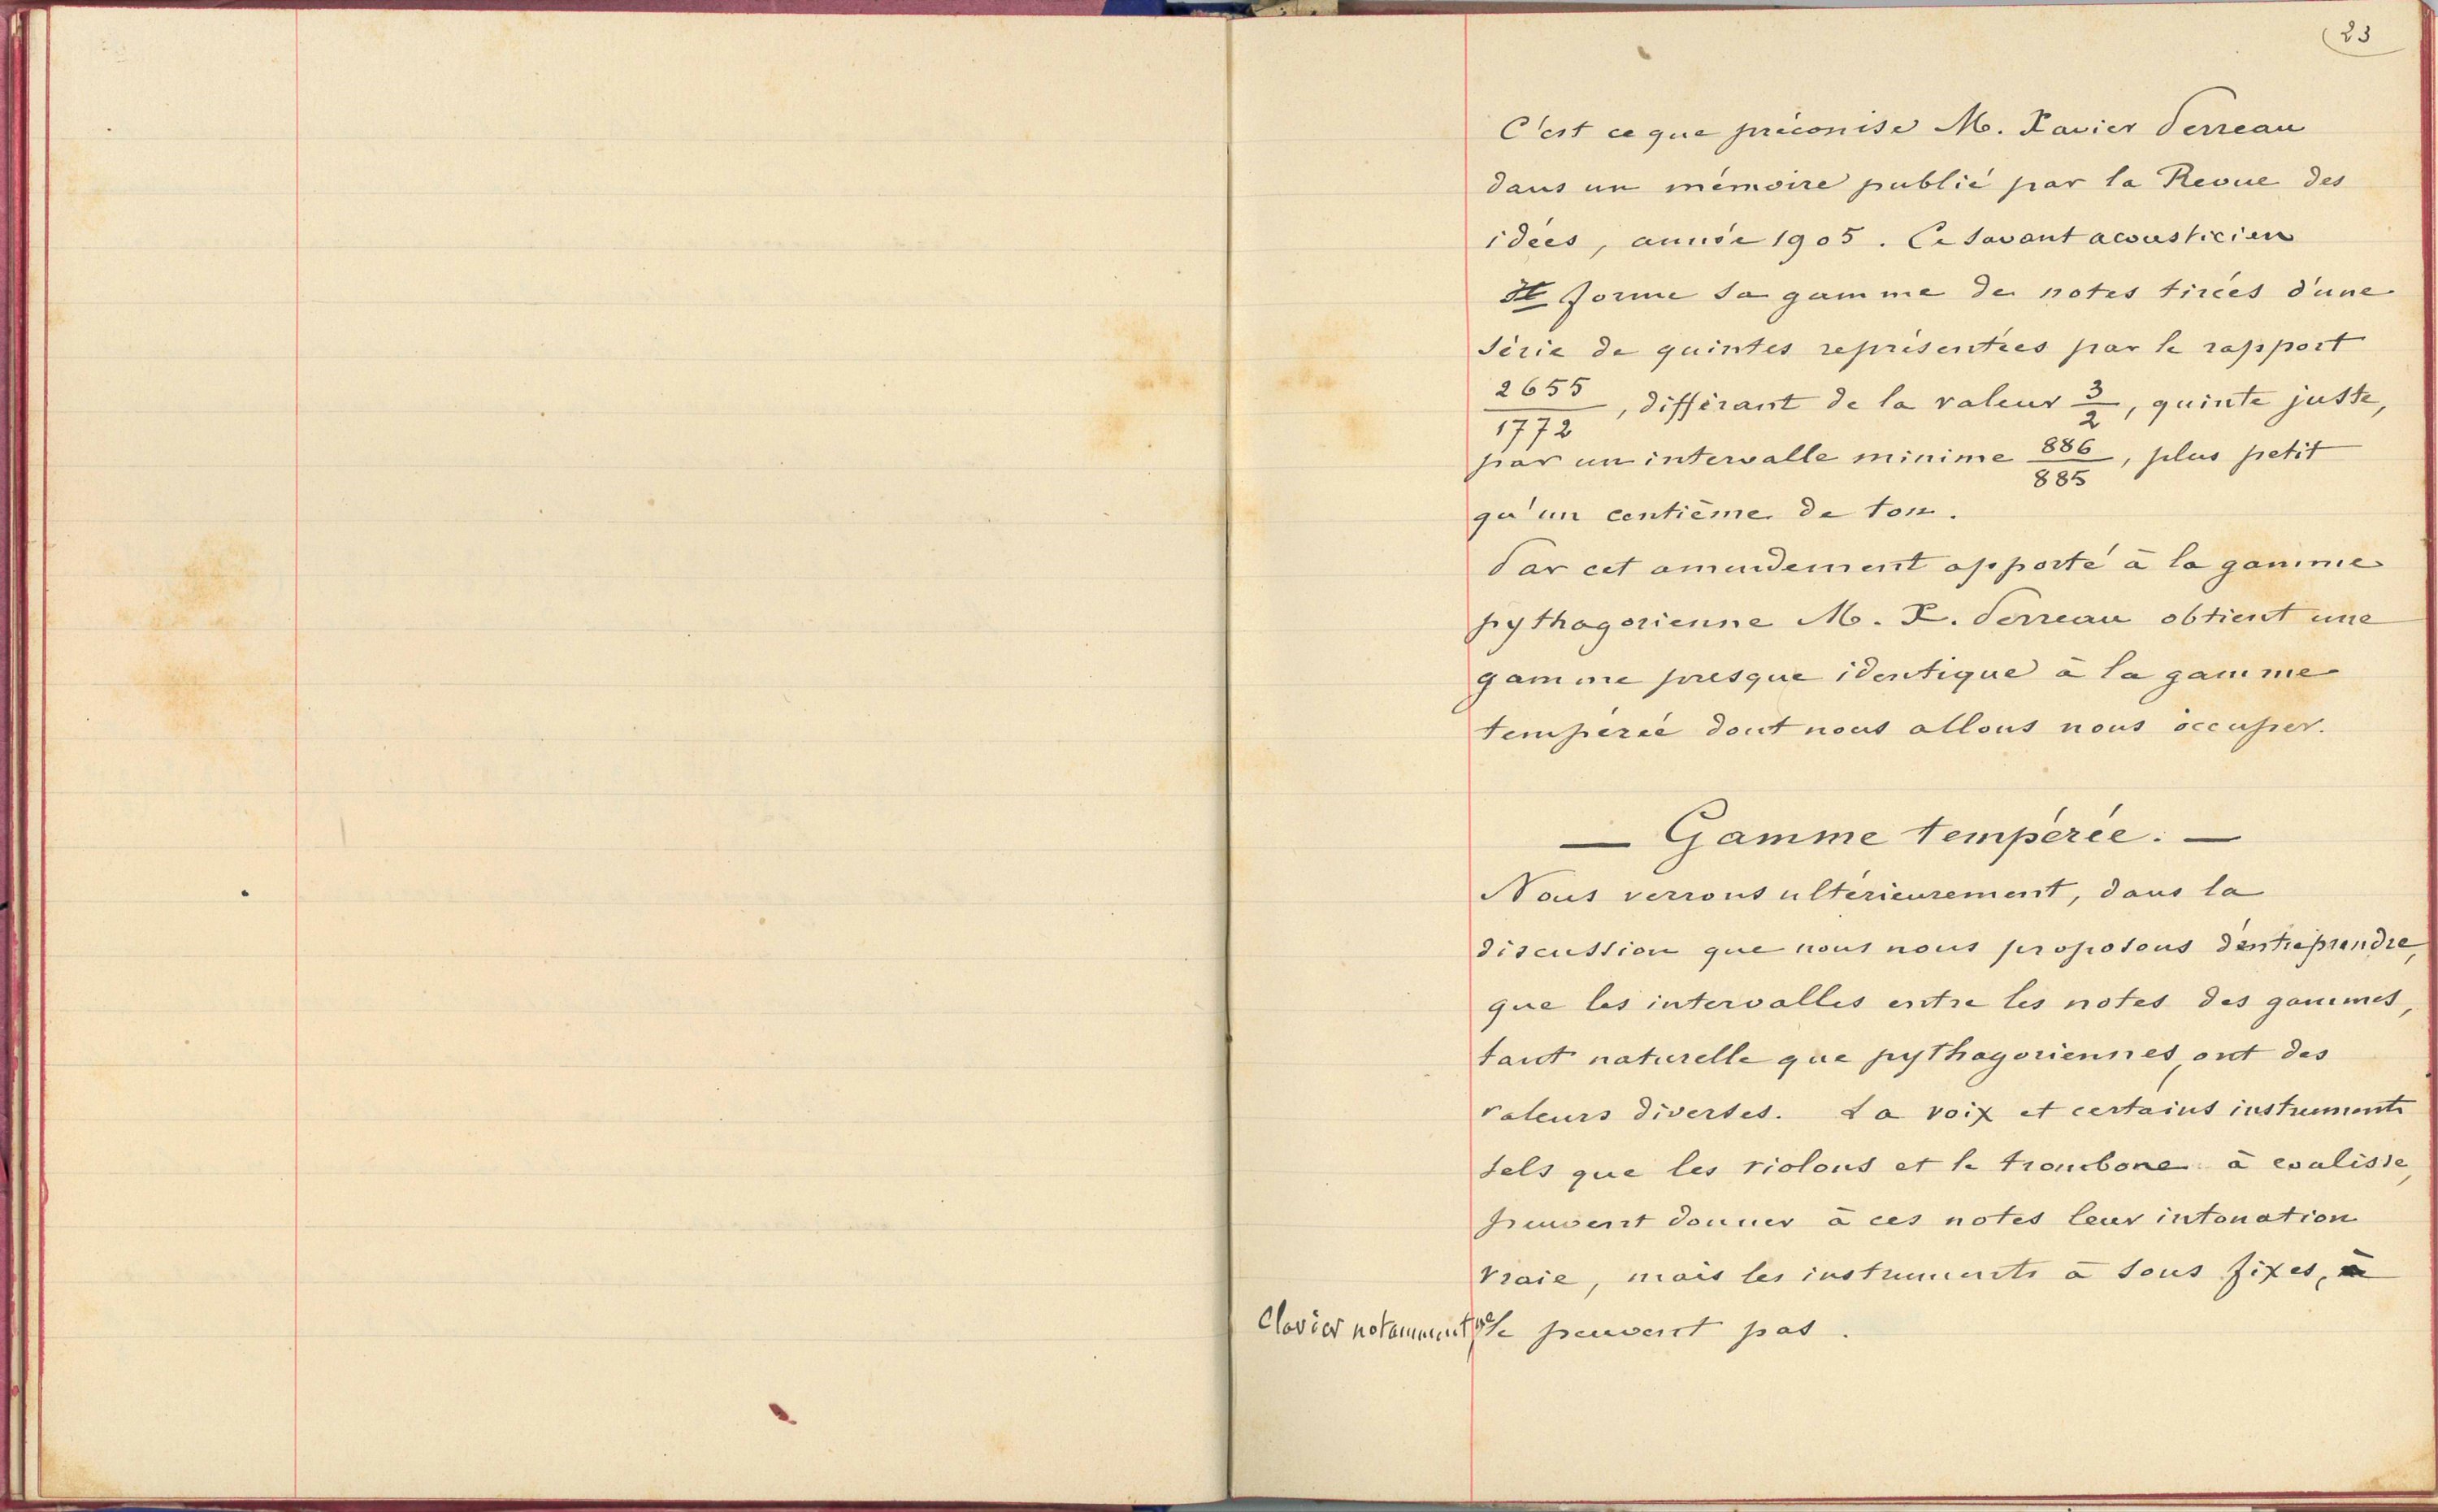 23
C'est ce que préconise M. Xavier Perreau
dans un mémoire publié par la Revue des
idées, année 1905. Ce savant acousticien
Il forme sa gamme de notes tirées d'une
série de quintes représentées par le rapport
2655/1772, différant de la valeur 3/2, quinte juste,
par un intervalle minime 886/885, plus petit
qu'un centième de ton.
Par cet amendement apporté à la gamme
pythagorienne M. X. Perreau obtient une
gamme presque identique à la gamme
tempérée dont nous allons nous occuper.
— Gamme tempérée. —
Nous verrons ultérieurement, dans la
discussion que nous nous proposons d'entreprendre,
que les intervalles entre les notes des gammes,
tant naturelle que pythagoriennes, ont des
valeurs diverses. La voix et certains instruments
tels que les violons et le trombone à coulisse,
peuvent donner à ces notes leur intonation
vraie, mais les instruments à sons fixes, à
Clavier notamment ne le peuvent pas.